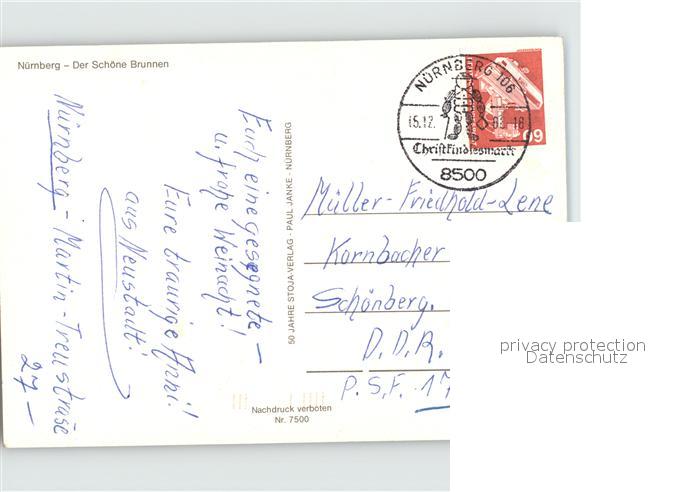 Nürnberg – Der Schöne Brunnen
Nürnberg - Martin-Treustraße
27 –
Euch eine gesegnete –
u. frohe Weinacht!
Eure traurige Anni!
aus Neustadt!
50 JAHRE STOJA-VERLAG - PAUL JANKE - NÜRNBERG
NÜRNBERG 106
15.12.
Christkindlesmarkt
8500
60
Müller-Friedhold-Lene
Kornbacher
Schönberg.
D.D.R.
P.S.F. 17
Nachdruck verboten
Nr. 7500
privacy protection
Datenschutz